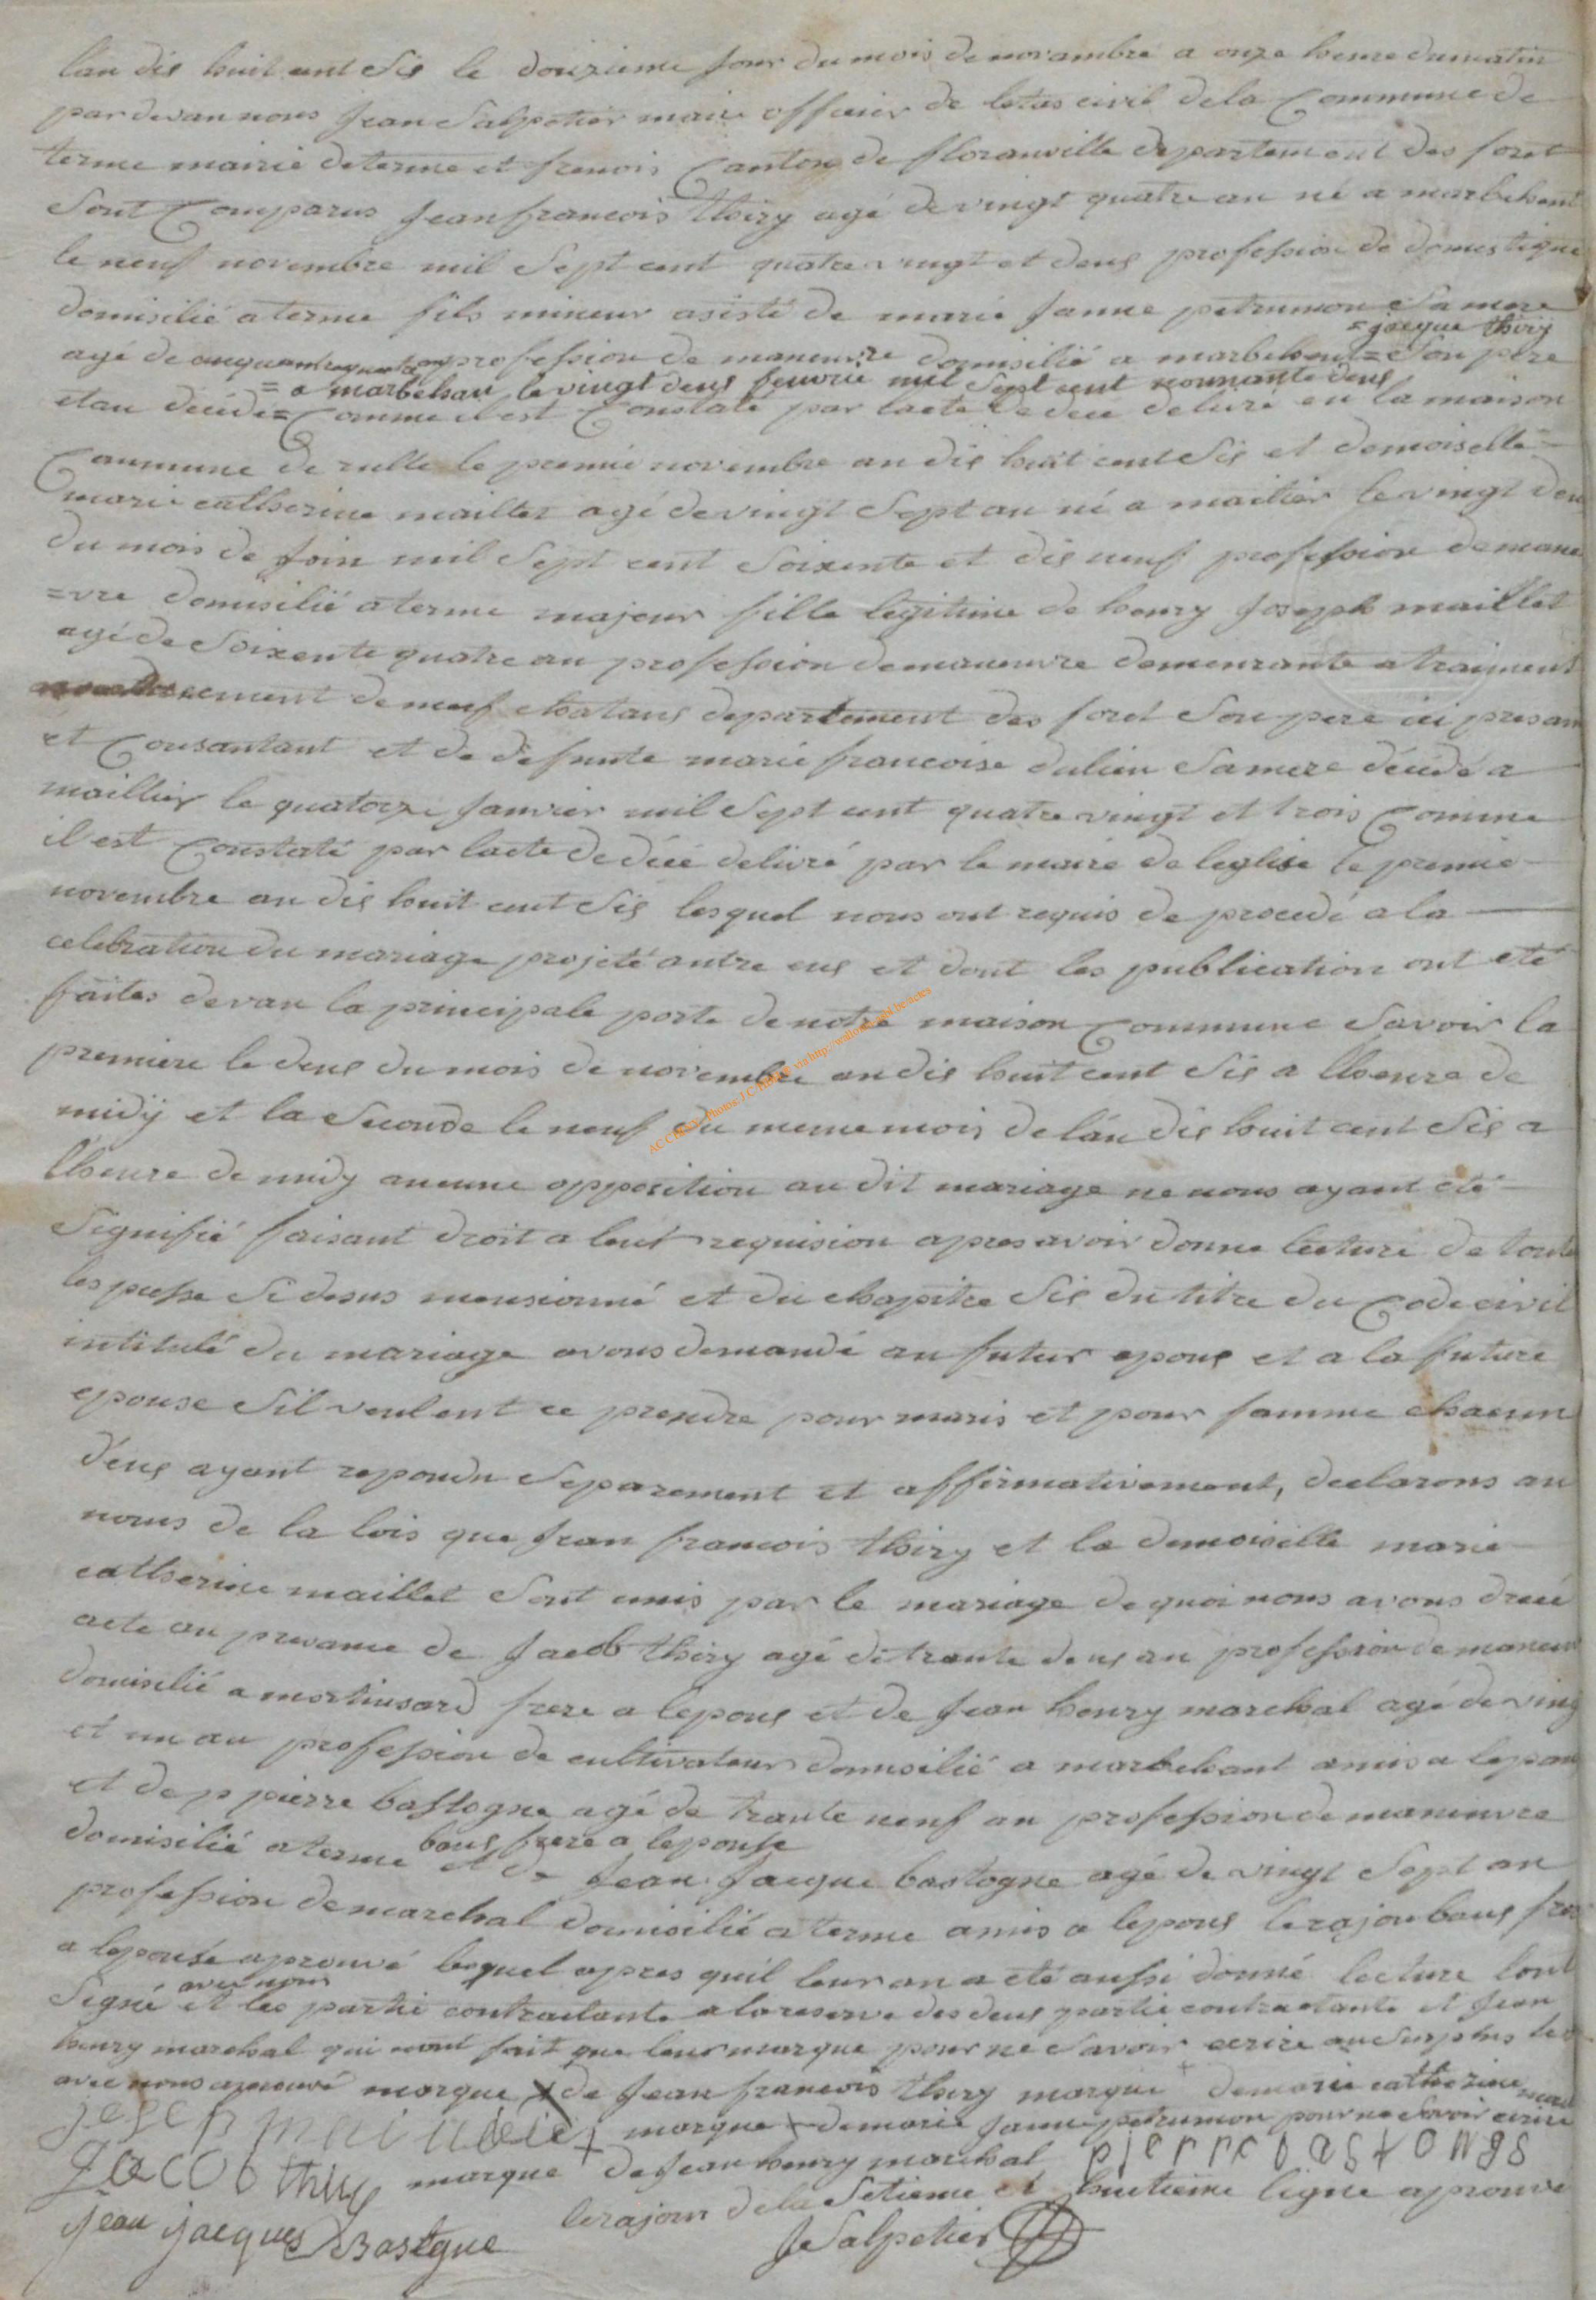 lan dis huit cent Sis le douzieme Jour du mois de novambre a onze heure dumatin
par devan nous Jean Salpetier maire officier de letas civil dela Commune de
terme mairie determe et frenois Canton de floranville departement des foret
Sont Comparus Jean francois thiry agé de vingt quatre an né a marbehant
le neuf novembre mil Sept cent quatre vingt et deus profession de domestique
domisilié a terme fils mineur asisté de marie Janne petrumon Sa mere
= jacque thiry
agé de cinquante quatre an profession de maneuvre domisilié a marbehant = Son pere
= a marbehan le vingt deus feuvrie mil Sept cent nonnante deus
etan décédé = Comme il est Constaté par lacte de déce delivré en la maison
Commune de rulle le premie novembre an dis huit cent Sis et demoiselle
marie catherine maillet agé de vingt Sept an né a maillier le vingt deu
du mois de Join mil Sept cent Soixente et dis neuf profession de maneu
=vre domisilié a terme majeur fille legitime de henry Joseph maillet
agé de Soixente quatre an profession demaneuvre demeurante a traimont
nement de neuf chataus departement des foret Son pere ici presan
et Consantant et de defunte marie francoise dulieu Samere décédé a
maillier le quatorze Janvier mil Sept cent quatre vingt et trois Comme
il est Constaté par lacte de décé delivré par le maire de leglise le premie
novembre an dis huit cent Sis lesquel nous ont requis de procedé a la
celebration du mariage projeté antre eus et dont les publication ont eté
faites devan la principale porte de notre maison Commune Savoir la
premiere le deus du mois de novembre an dis huit cent Sis a lheure de
midÿ et la Seconde le neuf du meme mois de lán dis huit cent Sis a
lheure de midy aucune opposition au dit mariage ne nous ayant eté
Signifié faisant droit a leur requision apres avoir donne lecture de toute
les piesse Si desus mensionné et du chapitre Sis du titre du Code civil
intitulé du mariage avons demandé au futur epous et a la future
epouse Sil veulent ce prendre pour maris et pour famme chacun
déus ayant repondu Separement et affirmativement, declarons au
nous de la lois que Jean francois thiry et la demoiselle marie
catherine maillet Sont unis par le mariage de quoi nous avons dréce
acte an presance de Jacob thiry agé de trante deus an profession de maneuv
domisilié a mortinsard frere a lepous et de Jean henry marchal agé de ving
et un an profession de cultivateur domisilié a marbehant amis a lepou
et de p pierre bastogne agé de trante neuf an profession de maneuvre
baus frere a lepouse
domisilié a terme et de Jean Jacque bastogne agé de vingt Sept an
profession de marchal domisilié a terme amis a lepous lerajou baus frer
a lepouse aprouvé lesquel apres quil leur an a eté aussi donné lecture lont
avec nous
Signé et les partie contractante a la reserve des deus partie contractante et Jean
henry marchal qui nont fait que leur marque pour ne Savoir ecrire au Surplus les
avec nous aprouvé marque x de Jean francois thiry marque + de marie catherine mail
marque + de marie Janne petrumon pour ne Savoir ecrire
Jacob thiry marque + de Jean henry marchal pierre bastongs
lerajour de la Setieme et huitieme ligne aprouve
jean jacques Bastgne J Salpetier